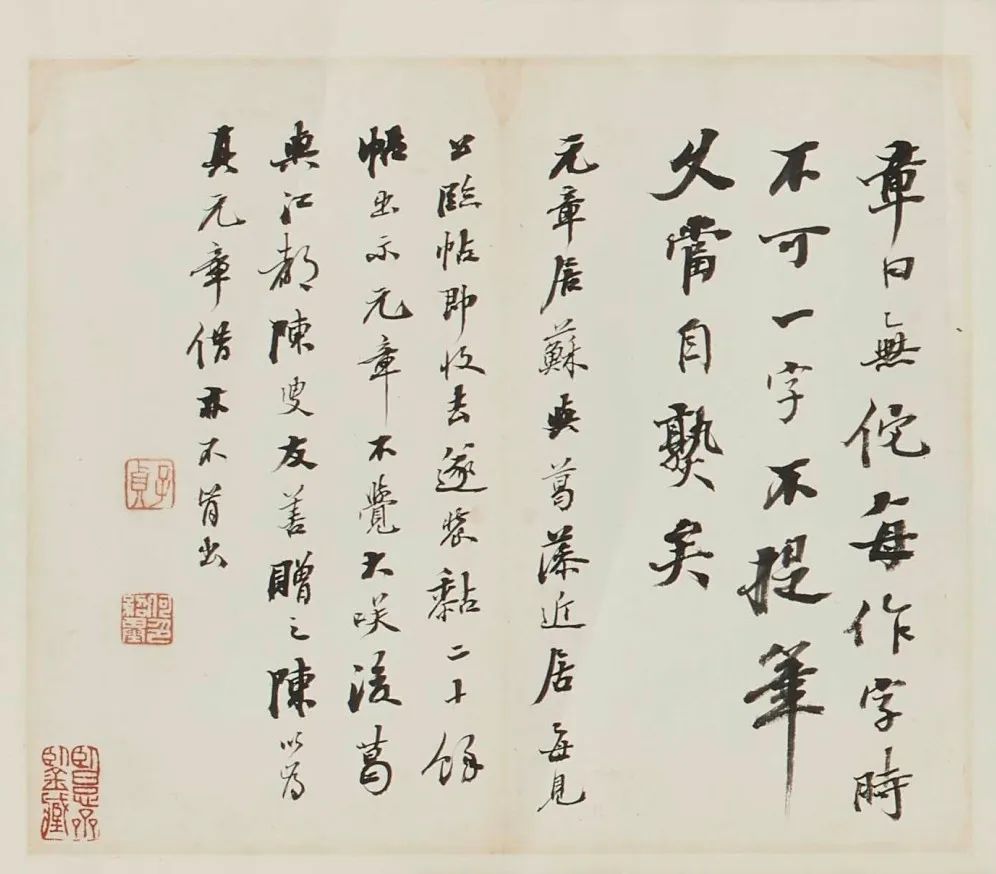 章曰無佗每作字時
不可一字不提筆
久當自熟矣
元章居蘇與葛藻近居每見
公臨帖即收去遂裝黏二十餘
帖出示元章不覺大咲後葛
與江都陳臾友善贈之陳以為
真元章借亦不肯出
子貞
何印紹基